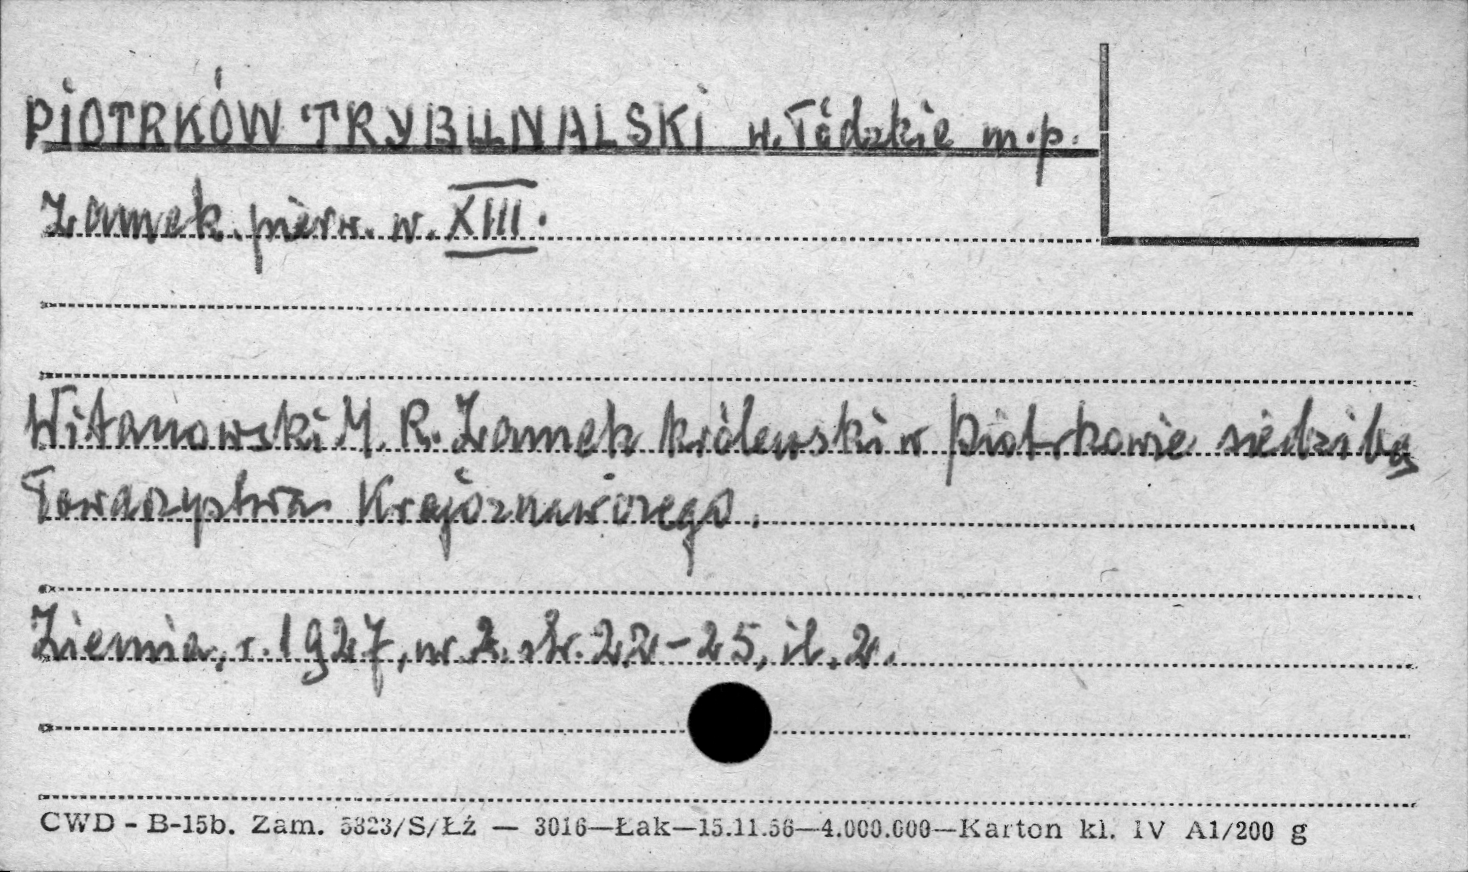 PIOTRKÓW TRYBUNALSKI w. Łódzkie m.p.
Zamek. pierw. w. XIII.
Witanowski M. R. Zamek królewski w Piotrkowie siedzibą
Towarzystwa Krajoznawczego.
Ziemia, r. 1927, nr. 2. str. 22-25, il. 2.
CWD - B-15b. Zam. 5323/S/Łź — 3016—Łak—15.11.56—4.000.000—Karton kl. IV A1/200 g